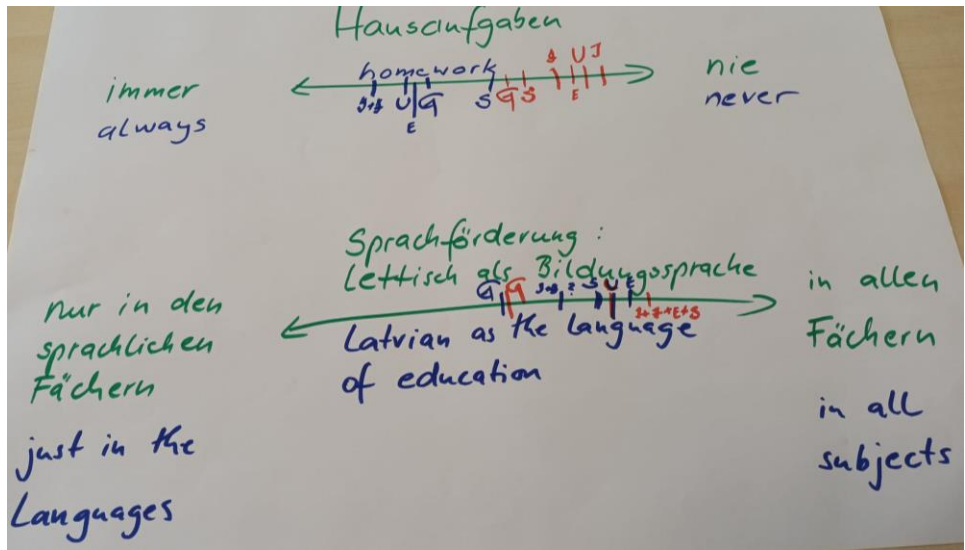 Hausaufgaben
homework
immer
always
nie
never
U J
U G S G S
E E
Sprachförderung:
Lettisch als Bildungssprache
G G S U E
Latvian as the language
of education
nur in den
sprachlichen
Fächern
just in the
Languages
in allen
Fächern
in all
subjects